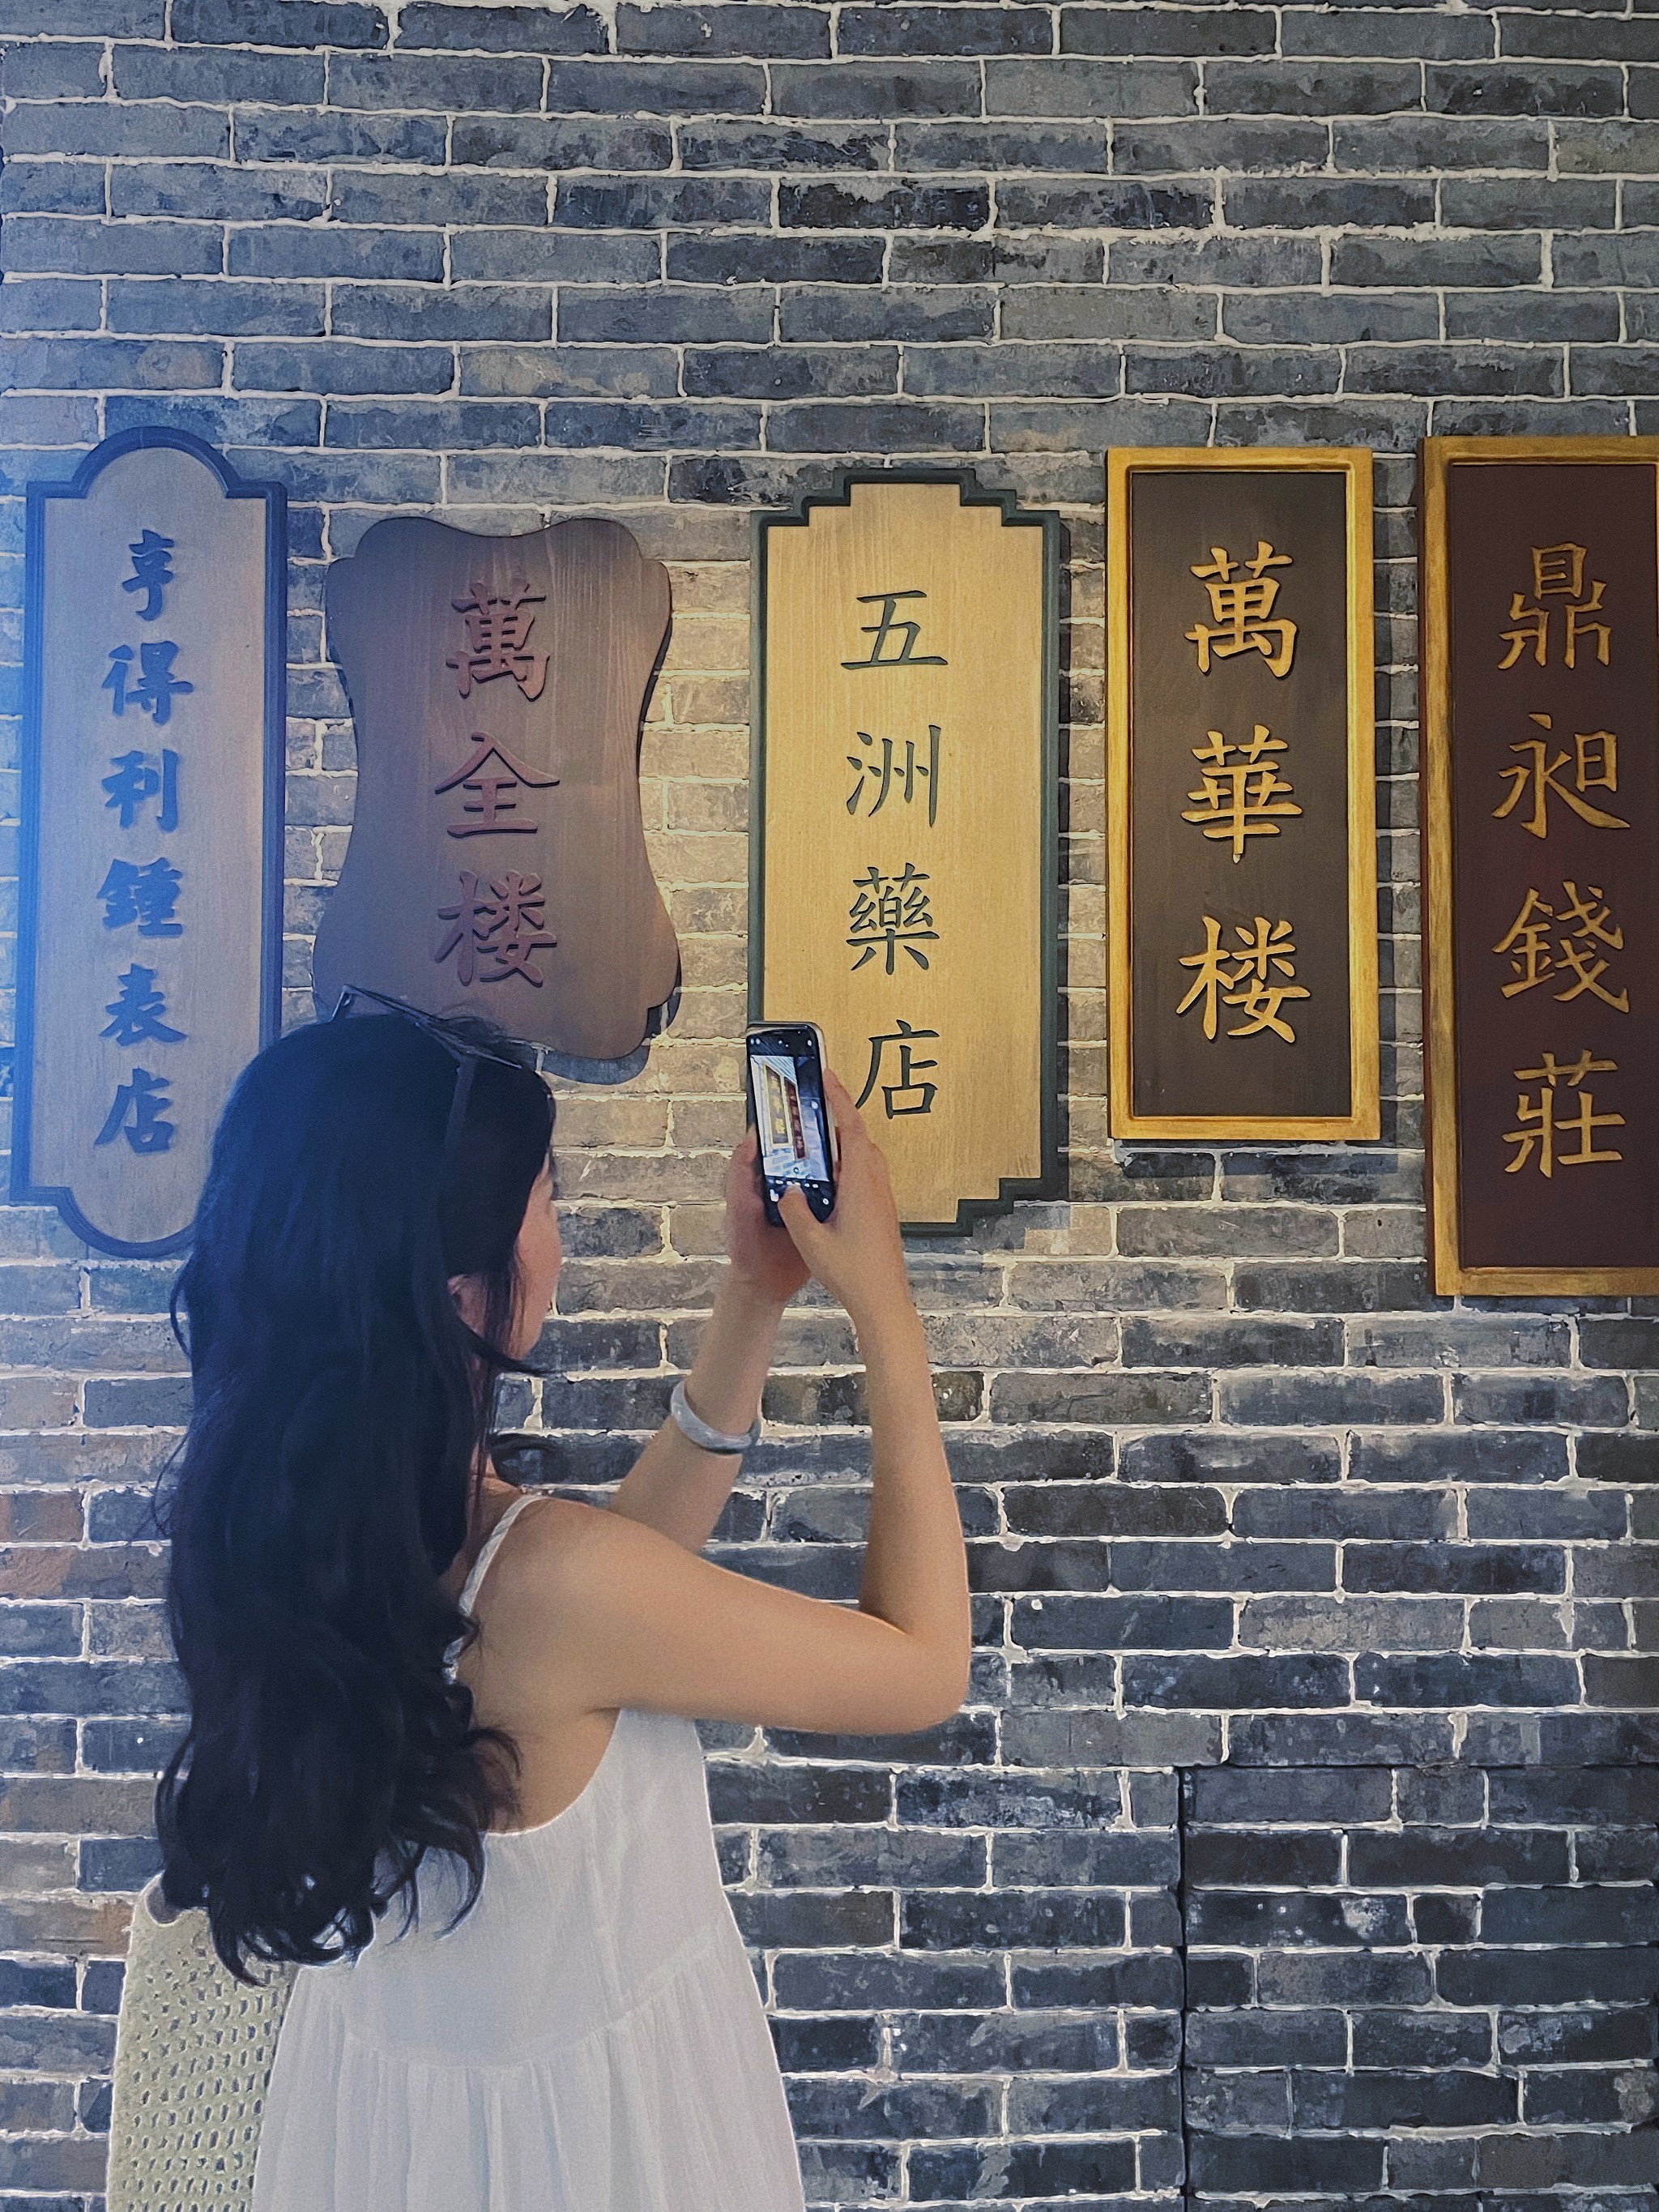 亨得利鐘表店
萬全楼
五洲藥店
萬華楼
鼎昶錢莊